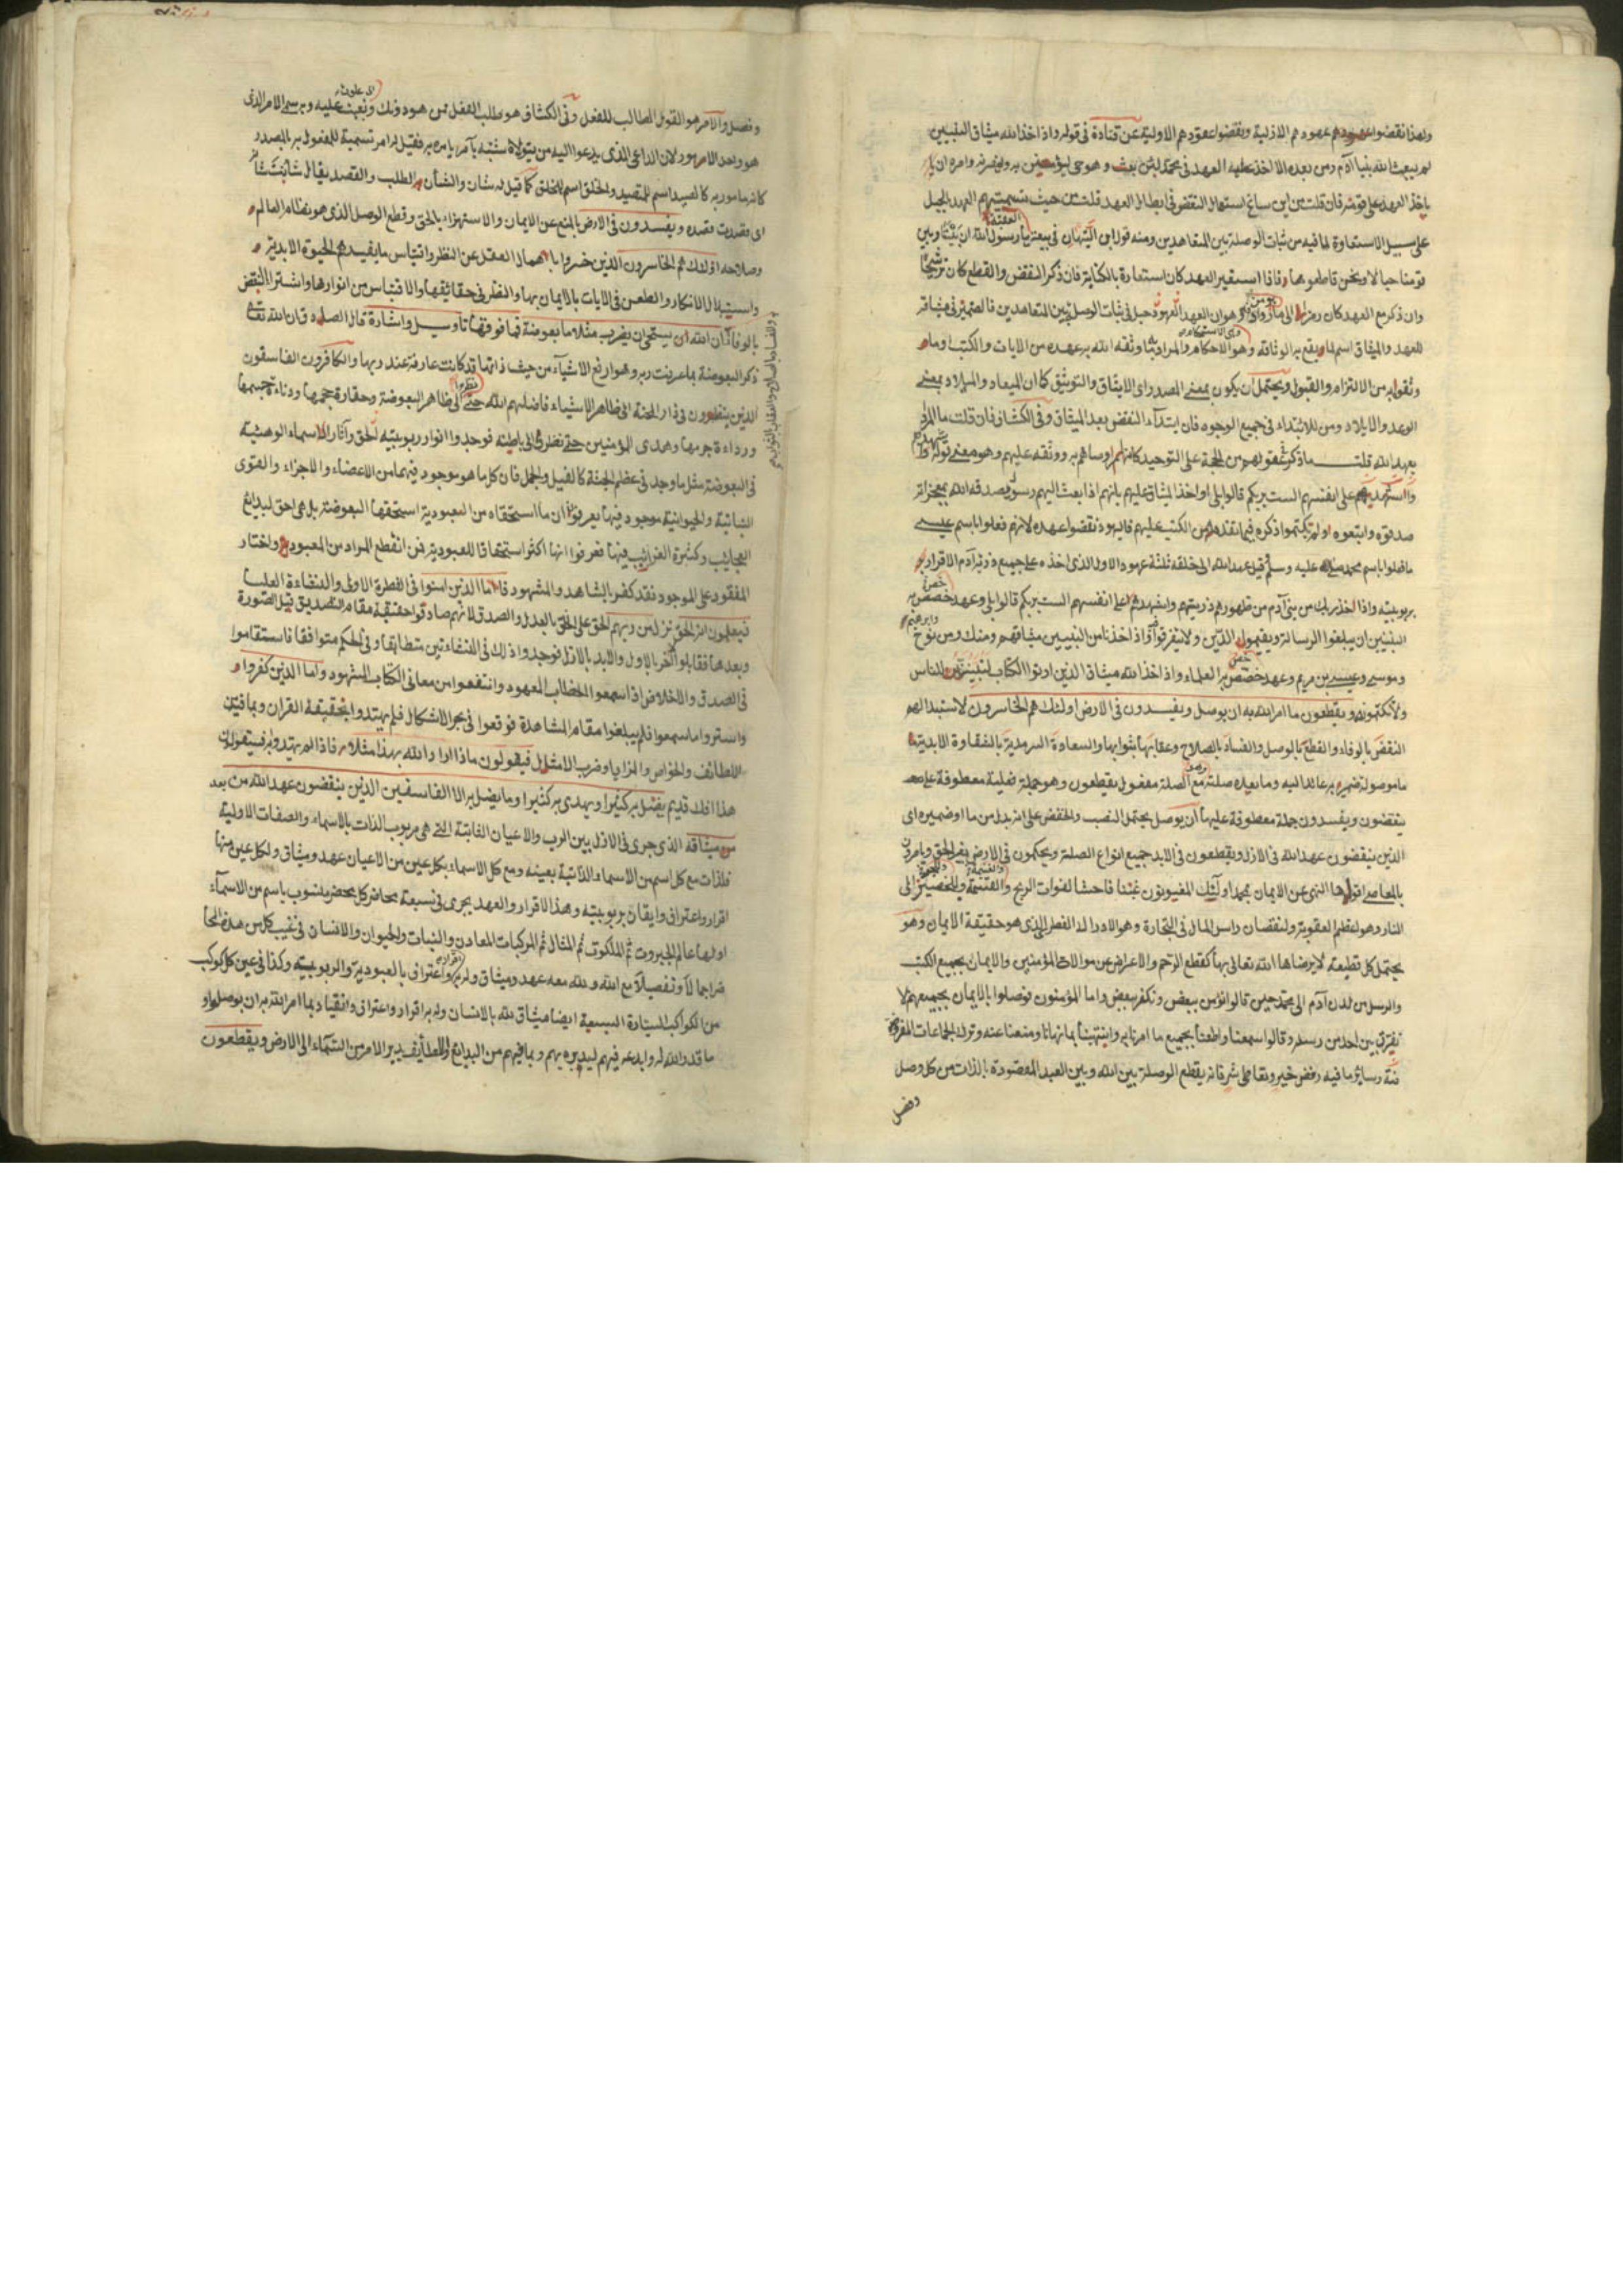 ولهذا نقضوا عهودهم الازلية ونقضوا عقودهم الاولية عن قتادة في قوله واذ اخذ الله ميثاق النبيين
لم يبعث الله نبيا آدم ومن بعده الا اخذ عليه العهد في محمد لئن بعث وهو حي ليؤمنن به ولينصرنه وامره ان
ياخذ العهد على قومه فان قلت من اين ساغ استعمال النقض في ابطال العهد قلت من حيث تسميتهم العهد بالحبل
على سبيل الاستعارة لما فيه من ثبات الوصلة بين المتعاهدين ومنه قول ابن التيهان في بيعة العقبة يا رسول الله ان بيننا وبين
قومنا حبالا ونحن قاطعوها فاذا استعير العهد كان استعارة بالكناية فان ذكر النقض والقطع كان ترشيحا
وان ذكر مع العهد كان رمزا الى ما هو من وهو ان العهد حبل في ثبات الوصل بين المتعاهدين فالضمير في ميثاقه
للعهد والميثاق اسم لما يقع به الوثاقة وهو الاحكام والمراد ما وثقه الله به عهده من الايات والكتب وما
وثقوا به من الالتزام والقبول ويحتمل ان يكون بمعنى المصدر اى الايثاق والتوثيق كما ان الميعاد والميلاد بمعنى
الوعد والايلاد ومن للابتداء في جميع الوجوه فان ابتداء النقض بعد الميثاق وفي الكشاف فان قلت ما المراد
بعهد الله قلت ما ذكر في عقولهم من الحجة على التوحيد كانه امر وصاهم به ووثقه عليهم وهو معنى قوله
واشهدهم على انفسهم الست بربكم قالوا بلى او اخذ الميثاق عليهم بانهم اذا بعث اليهم رسول يصدقه الله بمعجزاته
صدقوه واتبعوه ولم يكتموا ذكره فيما تقدمه من الكتب عليهم فاليهود نقضوا عهده لانهم فعلوا باسم عيسى
ما فعلوا باسم محمد صلى الله عليه وسلم قيل عهد الله الى خلقه ثلثة عهود الاول الذى اخذه على جميع ذرية آدم الاقرار
بربوبيته واذ اخذ ربك من بنى آدم من ظهورهم ذريتهم واشهدهم على انفسهم الست بربكم قالوا بلى وعهد خص به
النبيين ان يبلغوا الرسالة ويقيموا الدين ولا يتفرقوا واذ اخذنا من النبيين ميثاقهم ومنك ومن نوح وابرهيم
وموسى وعيسى بن مريم وعهد خص به العلماء واذ اخذ الله ميثاق الذين اوتوا الكتاب لتبيننه للناس
ولا تكتمونه ويقطعون ما امر الله به ان يوصل ويفسدون في الارض اولئك هم الخاسرون لاستبدالهم
النقض بالوفاء والقطع بالوصل والفساد بالصلاح وعقابها بثوابها والسعادة السرمدية بالشقاوة الابدية
ما موصولة ضمير به عائد اليه وما بعده صلته مع الصلة مفعول يقطعون وهو جملة فعلية معطوفة على
ينقضون ويفسدون جملة معطوفة عليها ان يوصل يحتمل النصب والخفض على انه بدل من ما او ضميره اى
الذين ينقضون عهد الله في الازل ويقطعون في الابد جميع انواع الصلة ويحكمون في الارض بغير الحق ويامرون
بالمعاصى النهى عن الايمان بمحمد اولئك المغبونون غبنا فاحشا لفوات الربح والغنيمة الى
النار وهو لعظيم العقوبة ولنقصان راس المال في التجارة وهو الفطرى الذى هو حقيقة الايمان وهو
يحتمل كل قطيعة لا يرضاها الله تعالى بها كقطع الرحم والاعراض عن موالاة المؤمنين والايمان بجميع الكتب
والرسل من لدن آدم الى محمد حين قالوا نؤمن ببعض ونكفر ببعض واما المؤمنون فوصلوا بالايمان بجميعهم لا
نفرق بين احد من رسله وقالوا سمعنا واطعنا بجميع ما امرنا به وانتهينا بما نهانا ومنعنا عنه وترك الجماعات المفروضة
وسائر ما فيه رفض خير وتعاطى شر فانه يقطع الوصلة بين الله وبين العبد المقصودة بالذات من كل وصل
وفصل
وفصل والامر هو القول الطالب للفعل وفي الكشاف هو طلب الفعل ممن هو دونك وبعثه عليه وبه سمى الامر الذى
هو واحد الامور لان الداعى الذى يدعوا اليه من يتولاه شبه بآمر يامره به فقيل له امر تسمية للمفعول به بالمصدر
كانه مامور به كالصيد اسم للمصيد والخلق اسم للمخلوق كما قيل له شان والشأن الطلب والقصد يقال شانت شانه
اى قصدت قصده ويفسدون في الارض بالمنع عن الايمان والاستهزاء بالحق وقطع الوصل الذى هو نظام العالم
وصلاحه اولئك هم الخاسرون الذين خسروا باهمال العقل عن النظر واقتباس ما يفيدهم الحيوة الابدية
واستبدال الانكار والطعن في الايات بالايمان بها والنظر في حقائقها والاقتباس من انوارها واشتراء النقض
بالوفاء ان الله لا يستحيى ان يضرب مثلا ما بعوضة فما فوقها تاويل واشارة قال الصادق ان الله تعالى
والفساد بالصلاح والعقاب بالثواب
ذكر البعوضة بما عرفت ربه وهو ارفع الاشياء من حيث ذاتها قد كانت عارفة عند ربها والكافرون الفاسقون
الذين ينظرون في الى ظاهر الاشياء فاضلهم الله حتى نظروا الى ظاهر البعوضة وحقارة حجمها ودناءة جسمها
ورداءة جرمها وهدى المؤمنين حتى نظروا الى باطنه فوجدوا انوار ربوبيته الحق وآثار الاسماء الوهيته
في البعوضة مثل ما وجد في عظم الجثة كالفيل والجمل فان كل ما هو موجود فيهما من الاعضاء والاجزاء والقوى
النباتية والحيوانية موجود فيها يعرفوا ان ما استحقاه من المعبودية استحقها البعوضة بل هى احق لبدائع
العجايب وكثرة الغرايب فيها فعرفوا انها اكثر استحقاقا للعبودية فمن انقطع المراد من المعبود واختار
المفقود على الموجود فقد كفر بالشاهد والمشهود فاما الذين امنوا في الفطرة الاولى والنشاءة العليا
فيعلمون انه الحق نزل من ربهم الحق على الحق بالعدل والصدق لانهم صادقوا حقيقة مقام التصديق قبل الصورة
وبعدها فقابلوا الاخر بالاول والابد بالازل فوجدوا ذلك في النشاءتين متطابقا وفي الحكم متوافقا فاستقاموا
في الصدق والاخلاص اذا سمعوا الخطاب المعهود وانتفعوا من معانى الكتاب المشهود واما الذين كفروا
واستروا ما سمعوا فلم يبلغوا مقام المشاهدة فوقعوا في بحر الاشكال فلم يهتدوا بحقيقة القران وبما فيه من
اللطائف والخواص والمزايا وضرب الامثال فيقولون ماذا اراد الله بهذا مثلا فاذ لم يهتدوا به فسيقولون
هذا افك قديم يضل به كثيرا ويهدى به كثيرا وما يضل به الا الفاسقين الذين ينقضون عهد الله من بعد
ميثاقه الذى جرى في الازل بين الرب والاعيان الثابتة التى هى مربوب الذات بالاسماء والصفات الاولية
فللذات مع كل اسم من الاسماء الذاتية بعينه ومع كل الاسماء بكل عين من الاعيان عهد وميثاق ولكل عين منها
اقرار واعتراف وايقان بربوبيته وهذا الاقرار والعهد يجرى في سبعة محاضر كل محضر منسوب باسم من الاسماء
اولها عالم الجبروت ثم الملكوت ثم المثال ثم المركبات المعادن والنبات والحيوان والانسان في غيب كل من هذه
اجمالا وتفصيلا مع الله ولله معه عهد وميثاق وله به اقرار واعتراف بالعبودية والربوبيته وكذا في عين كل كوكب
من الكواكب السيارة السبعة ايضا ميثاق لله بالانسان وله به اقرار واعتراف وانقياد بما امر الله به ان يوصلوا
ما قدر الله له وابدعه فيهم ليدبره بهم وبما فيهم من البدائع واللطأيف يدبر الامر من السماء الى الارض ويقطعون